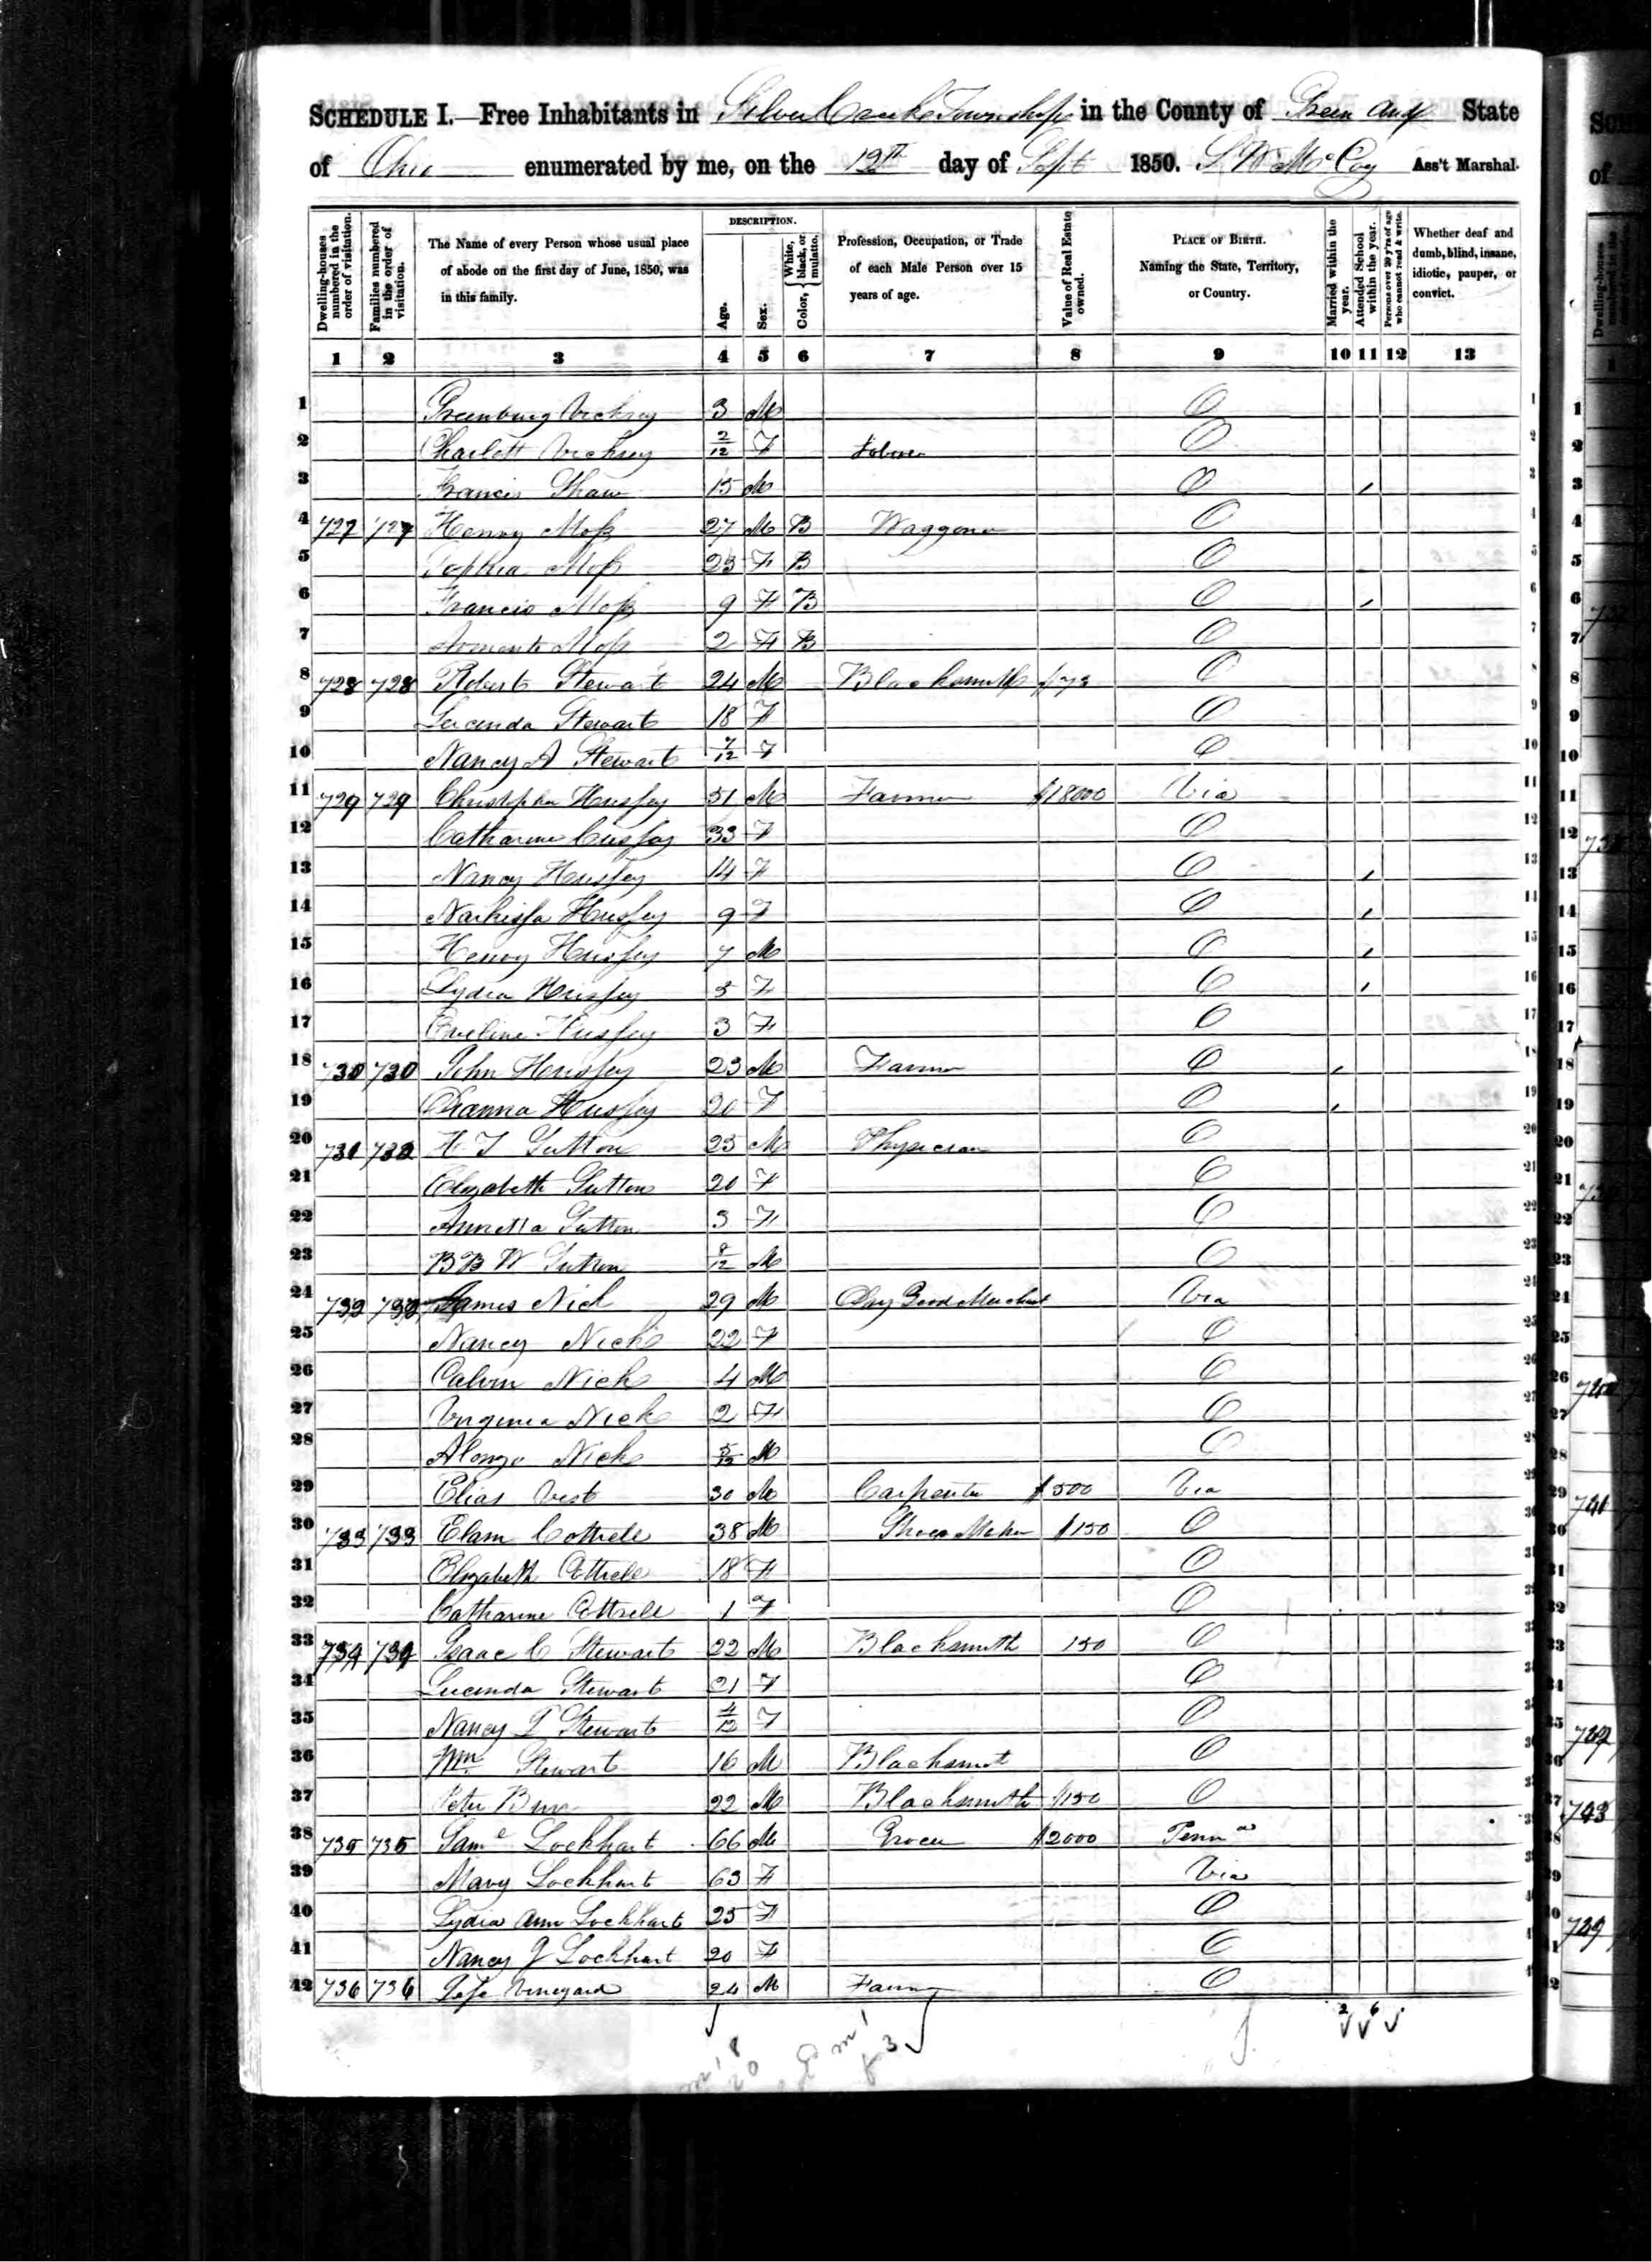 SCHEDULE I.—Free Inhabitants in Silver Creek Township in the County of Green and State
of Ohio enumerated by me, on the 12th day of Sept 1850. McCoy Ass't Marshal.
Dwelling-houses numbered in the order of visitation.
Families numbered in the order of visitation.
The Name of every Person whose usual place of abode on the first day of June, 1850, was in this family.
DESCRIPTION.
Age.
Sex.
Color, White, black, or mulatto.
Profession, Occupation, or Trade of each Male Person over 15 years of age.
Value of Real Estate owned.
PLACE OF BIRTH. Naming the State, Territory, or Country.
Married within the year.
Attended School within the year.
Persons over 20 y'rs of age who cannot read & write.
Whether deaf and dumb, blind, insane, idiotic, pauper, or convict.
1 2 3 4 5 6 7 8 9 10 11 12 13
1 3 M O
2 Charlott 2/12 F O
3 Francis Shaw 15 M O
4 727 727 Henry Moss 27 M B Waggoner O
5 Sophia Moss 23 F B O
6 Francis Moss 9 F B O
7 Moss 2 F B O
8 728 728 Robert Stewart 24 M Blacksmith O
9 Lucinda Stewart 18 F O
10 Nancy A Stewart 7/12 F O
11 729 729 Christopher Hussey 51 M Farmer $18000 Via
12 Catharine 33 F O
13 Nancy Hussey 14 F O
14 Hussey 9 F O
15 Henry Hussey 7 M O
16 Lydia Hussey 5 F O
17 Eveline Hussey 3 F O
18 730 730 John Hussey 23 M Farmer O
19 Hussey 20 F O
20 731 Sutton 25 M Physician O
21 Elizabeth Sutton 20 F O
22 Sutton 3 F O
23 B B W Sutton 8/12 M O
24 732 James Nick 29 M Dry Good Merchant Via
25 Nancy Nick 22 F O
26 Calvin Nick 4 M O
27 Virginia Nick 2 F O
28 Alonzo Nick 5/12 M O
29 Elias West 30 M Carpenter $500 Via
30 733 733 Elam Cottrell 38 M Shoe Maker $150 O
31 Elizabeth Cottrell 18 F O
32 Catharine Cottrell 1 F O
33 734 734 Isaac C Stewart 22 M Blacksmith 150 O
34 Lucinda Stewart 21 F O
35 Nancy Stewart 4/12 F O
36 Wm Stewart 16 M Blacksmit O
37 Peter 22 M Blacksmith $150 O
38 735 735 Saml Lockhart 66 M Grocer $2000 Penna
39 Mary Lockhart 63 F Via
40 Lydia Ann Lockhart 25 F O
41 Nancy J Lockhart 20 F O
42 736 736 Vineyard 24 M O